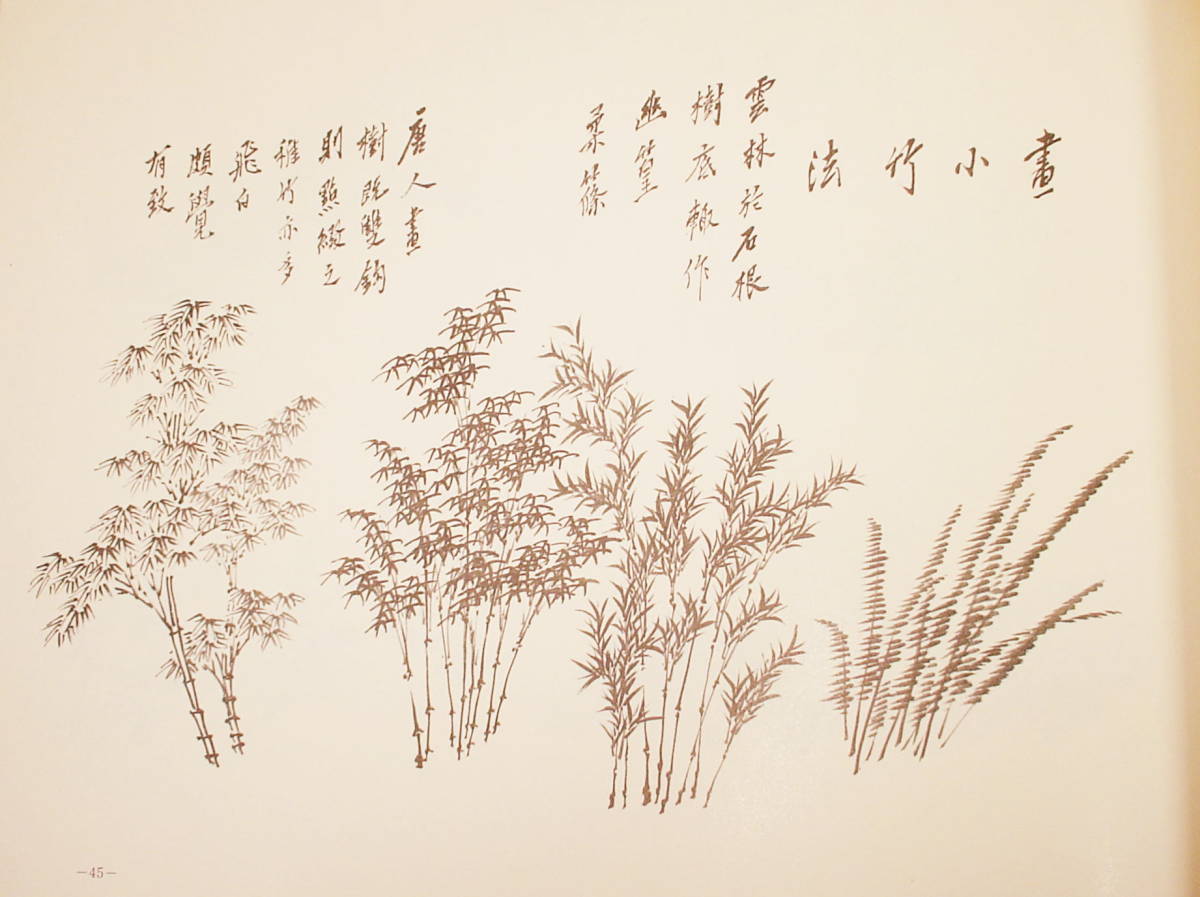 畫小竹法
雲林於石根
樹底輙作
幽篁
柔篠
唐人畫
樹既雙鈎
則點綴之
稚竹亦多
飛白
頗覺
有致
-45-